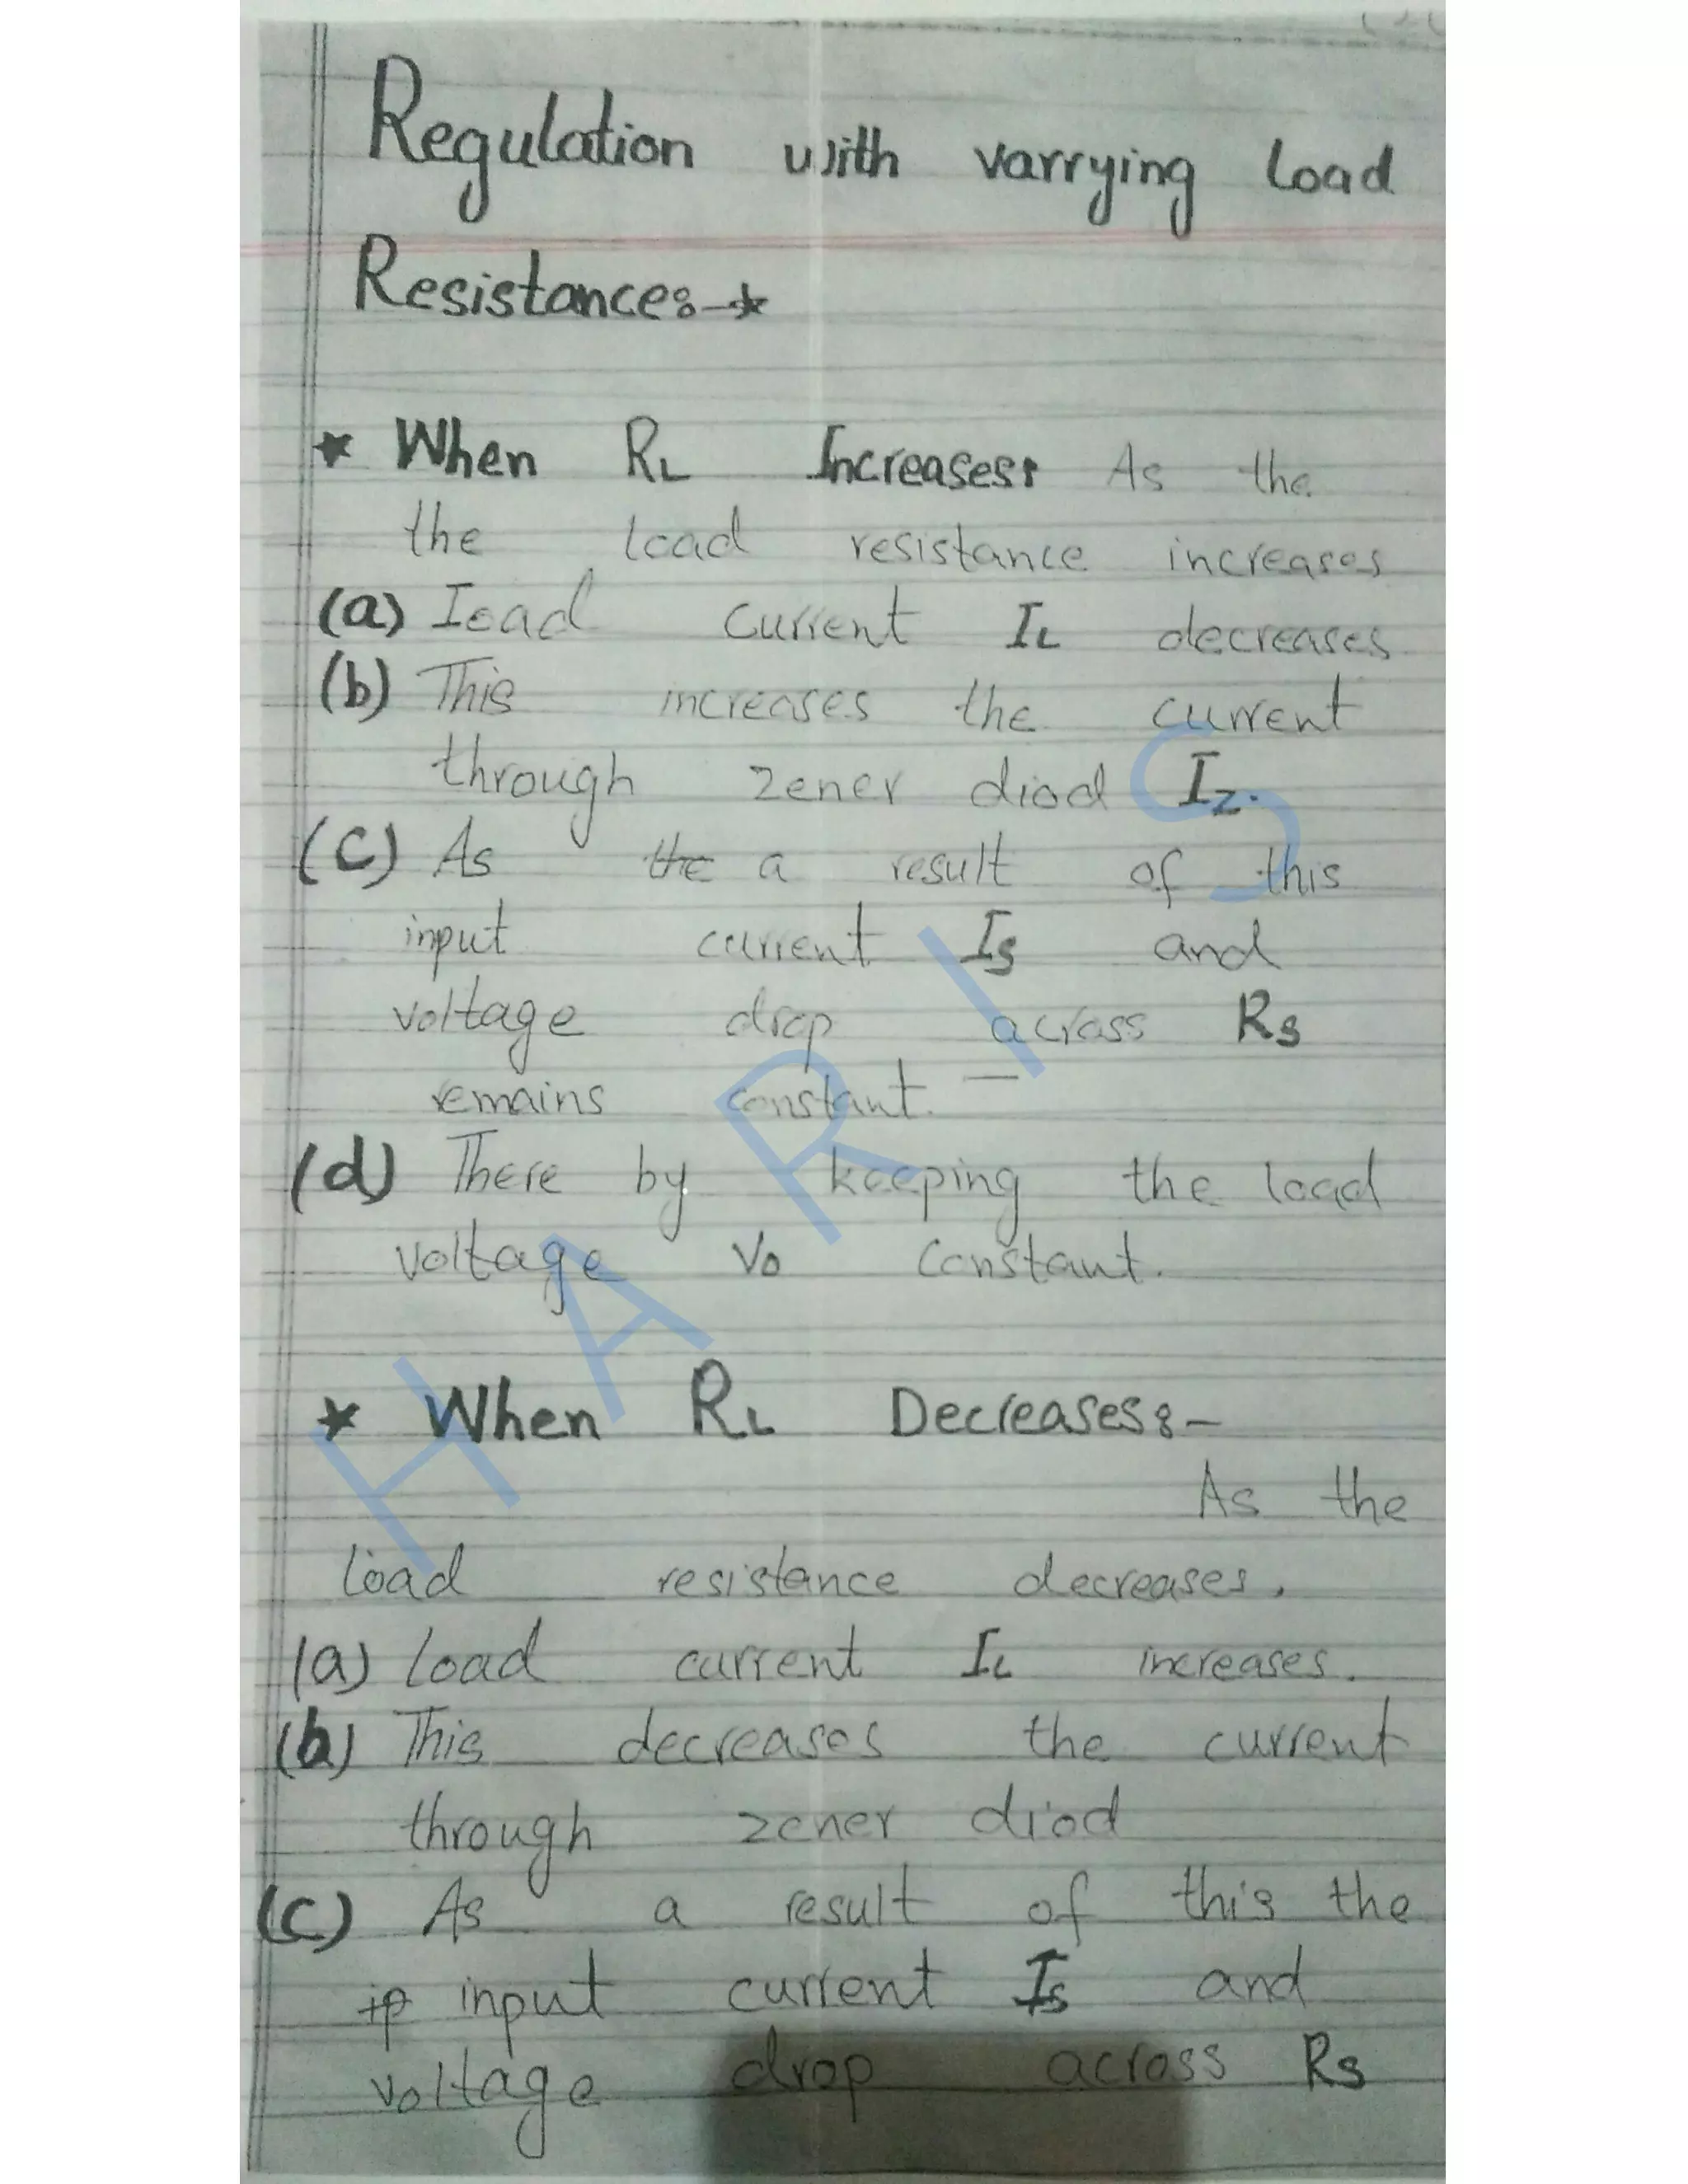 Regulation with varrying Load
Resistance:-*
* When RL Increases: As the
the load resistance increases
(a) Ioad current IL decreases
(b) This increases the current
through zener diod IZ.
(C) As the a result of this
input current IS and
voltage drop across RS
remains constant. —
(d) There by keeping the load
voltage Vo constant.
* When RL Decreases:-
As the
load resistance decreases,
(a) Load current IL increases.
(b) This decreases the current
through zener diod
(C) As a result of this the
ip input current Is and
voltage drop across Rs
HARIS